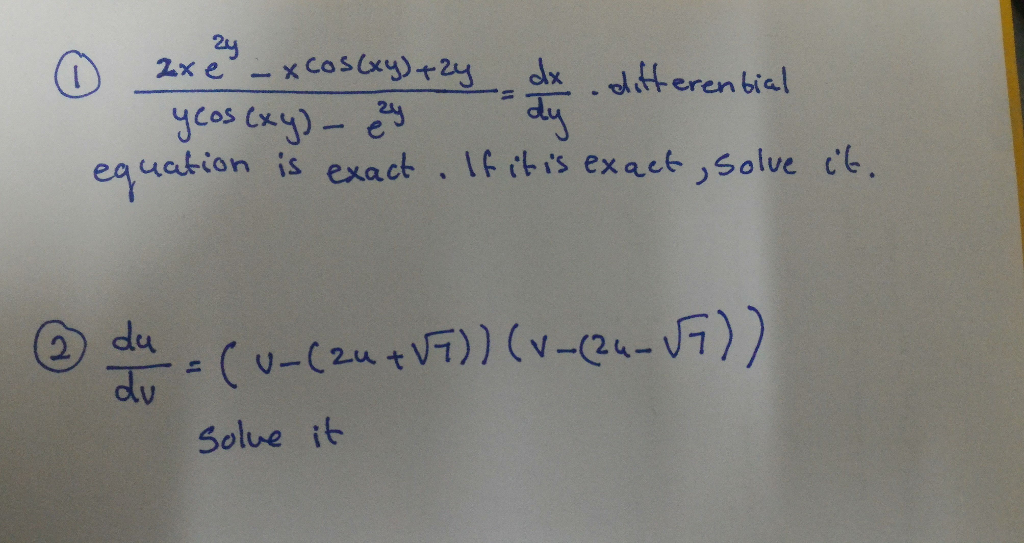 ① 2xe^2y - x cos(xy) + 2y / y cos(xy) - e^2y = dx/dy . differential
equation is exact . If it is exact , solve it.
② du/dv = ( v - (2u + √7)) (v - (2u - √7))
Solve it